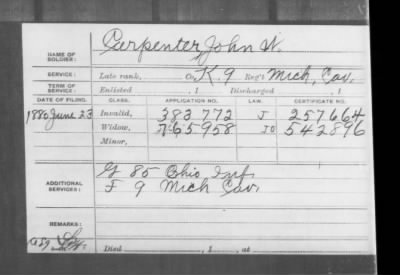 NAME OF SOLDIER: Carpenter, John W.
SERVICE: Late rank, Co. K. 9 Reg't Mich. Cav.
TERM OF SERVICE: Enlisted , 1 Discharged , 1
DATE OF FILING. CLASS. APPLICATION NO. LAW. CERTIFICATE NO.
1880 June 23 Invalid, 383 772 J 257664
Widow, 765958 542896
Minor,
ADDITIONAL SERVICES: G 85 Ohio Inf.
F 9 Mich Cav.
REMARKS:
Died , 1 , at